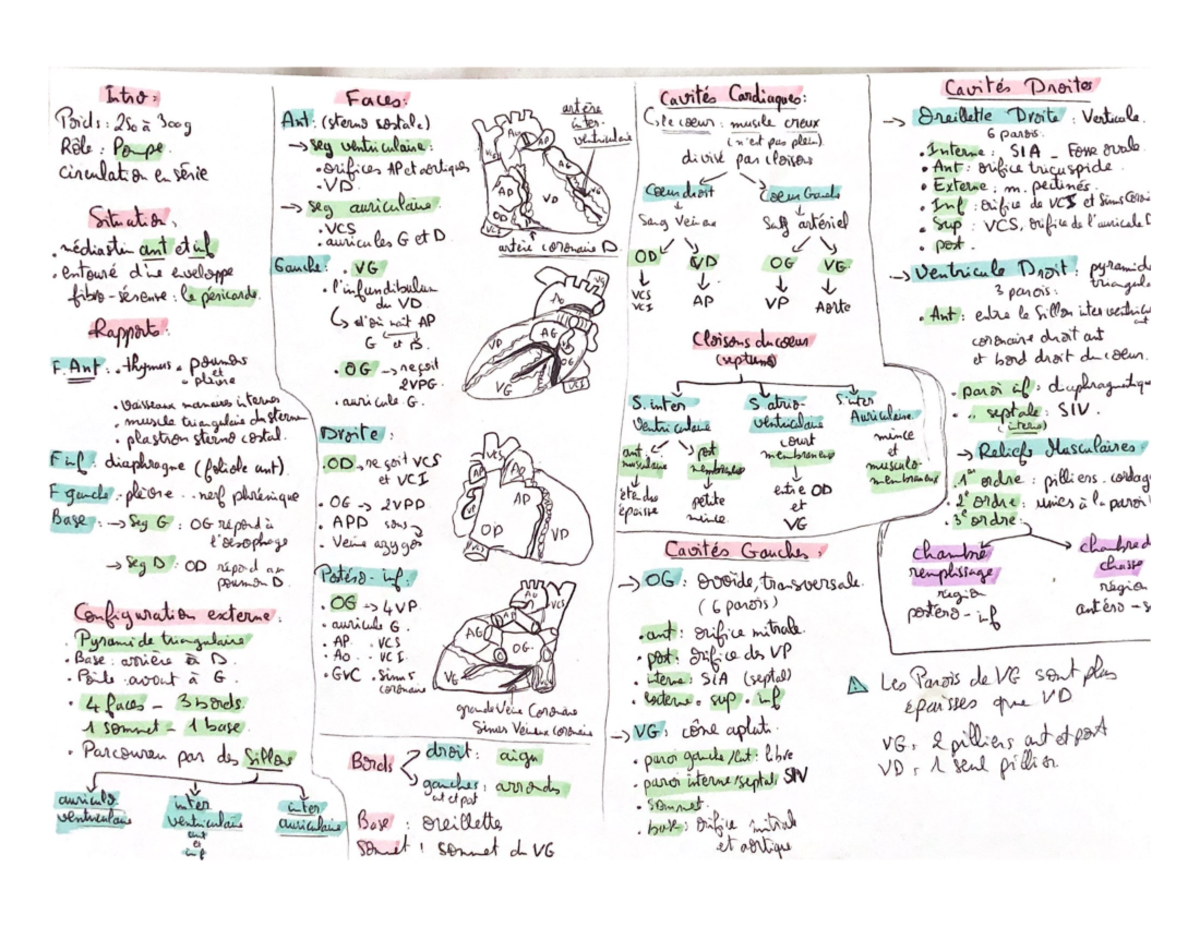 Intro:
Poids: 250 à 300g
Rôle: Pompe.
circulation en série
Situation,
. médiastin ant et inf
. entouré d'une enveloppe
fibro-séreuse: le péricarde.
Rapports:
F. Ant: . thymus . poumons
et
plèvre
. vaisseaux mamaires internes
. muscle triangulaire du sternum
. plastron sterno costal.
F inf: diaphragme (foliole ant).
F gauche: . plèvre . nerf phrénique
Base: → Seg G: OG répond à
l'oesophage
→ Seg D: OD répond au
poumon D.
Configuration externe:
. Pyramide triangulaire
. Base: arrière à D.
. Pointe avant à G.
. 4 faces - 3 bords
1 sommet - 1 base.
. Parcouru par des Sillons
auriculo
ventriculaire
inter
ventriculaire
ant
et
inf
inter
auriculaire
Faces:
Ant: (sterno costale)
→ Seg ventriculaire:
. orifices AP et aortiques
. VD.
→ seg auriculaire.
. VCS
. auricules G et D.
Gauche: . VG
. l'infundibulum
du VD
↳ d'où naît AP
G et D.
. OG → reçoit
2VPG.
. auricule G.
Droite:
. OD, reçoit VCS
et VCI
. OG → 2VPD
. APD sous
. Veine azygos
Postéro-inf:
. OG → 4VP
. auricule G.
. AP. . VCS
. Ao. . VCI.
. GVC . Sinus
coronaire
artère
inter-
ventriculaire
Ao
AP
AG
AP
VD
VG
OD
VCI
artère coronaire D.
VS
Ao
AG
VD
OG
VG
VCI
VCS
Ao
AP
OD
VD
VCI
Ao
VCS
AG
OG
VG
grande Veine Coronaire
Sinus Veineux coronaire
Bords
droit: aigu
gauches: arrondis
ant et post
Base: oreillettes
Sommet: sommet du VG
Cavités Cardiaques:
C le coeur: muscle creux
(n'est pas plein).
divisé par cloisons
Coeur droit
Coeur Gauche
Sang Veineux
Sang artériel
OD VD OG VG
VCS
VCI
AP
VP
Aorte
Cloisons du coeur
(septums)
S. inter
Ventriculaire
S atrio-
Ventriculaire
S. inter
Auriculaire
ant
musculaire
post
membraneux
court
membraneux
mince
et
musculo
membraneux
étendu
épaisse
petite
mince.
entre OD
et
VG
Cavités Gauches:
→ OG: Ovoïde, transversale.
(6 parois)
. ant: orifice mitrale.
. post: orifice des VP
. interne: SIA (septal)
. externe . sup . inf
→ VG: cône aplati.
. paroi gauche/lat: libre
. paroi interne/septal SIV
. Sommet.
. base: Orifice mitral
et aortique
Cavités Droites
→ Oreillette Droite: Verticale.
6 parois.
. Interne: SIA _ Fosse ovale.
. Ant: orifice tricuspide.
. Externe: m. pectinés.
. Inf: Orifice de VCI et Sinus Coron
. Sup: VCS, Orifice de l'auricule D
. post.
→ Ventricule Droit: pyramide
triangul
3 parois:
. Ant: entre le Sillon inter ventricul
ant
coronaire droit ant
et bord droit du coeur.
. paroi inf: diaphragmatique
. . septale: SIV.
(interne)
→ Reliefs Musculaires
. 1er ordre: pilliers . cordag
. 2e ordre: unies à la paroi
. 3e ordre:
chambre
remplissage
region
postéro-inf
chambre d
chasse
région
antéro-s
⚠ Les Parois de VG sont plus
épaisses que VD
VG: 2 pilliers ant et post
VD: 1 seul pillier.